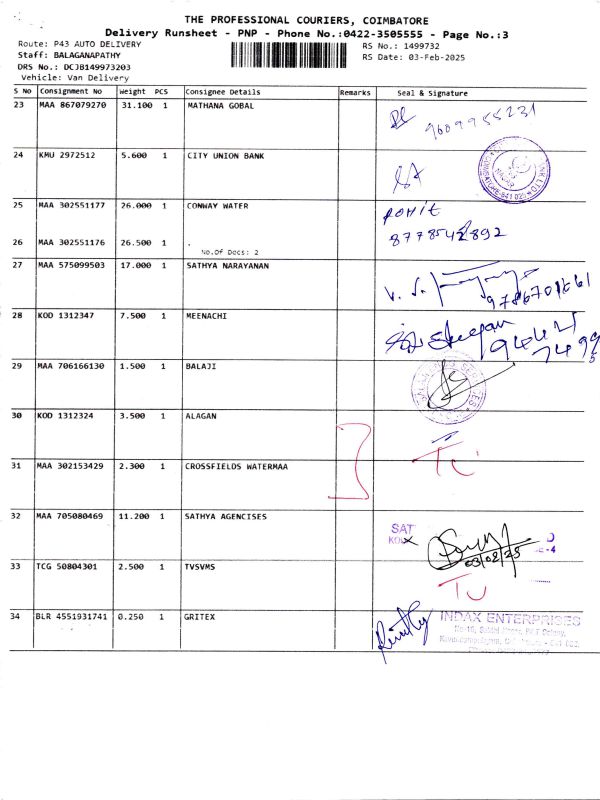 THE PROFESSIONAL COURIERS, COIMBATORE
Delivery Runsheet - PNP - Phone No.:0422-3505555 - Page No.:3
Route: P43 AUTO DELIVERY
RS No.: 1499732
Staff: BALAGANAPATHY
RS Date: 03-Feb-2025
DRS No.: DCJB149973203
Vehicle: Van Delivery
S No Consignment No Weight PCS Consignee Details Remarks Seal & Signature
23 MAA 867079270 31.100 1 MATHANA GOBAL
9609955231
24 KMU 2972512 5.600 1 CITY UNION BANK
25 MAA 302551177 26.000 1 CONWAY WATER
ROHIT
26 MAA 302551176 26.500 1 .
No.Of Docs: 2
27 MAA 575099503 17.000 1 SATHYA NARAYANAN
28 KOD 1312347 7.500 1 MEENACHI
29 MAA 706166130 1.500 1 BALAJI
30 KOD 1312324 3.500 1 ALAGAN
31 MAA 302153429 2.300 1 CROSSFIELDS WATERMAA
32 MAA 705080469 11.200 1 SATHYA AGENCISES
SAT
03/02/25
33 TCG 50804301 2.500 1 TVSVMS
34 BLR 4551931741 0.250 1 GRITEX
INDAX ENTERPRISES